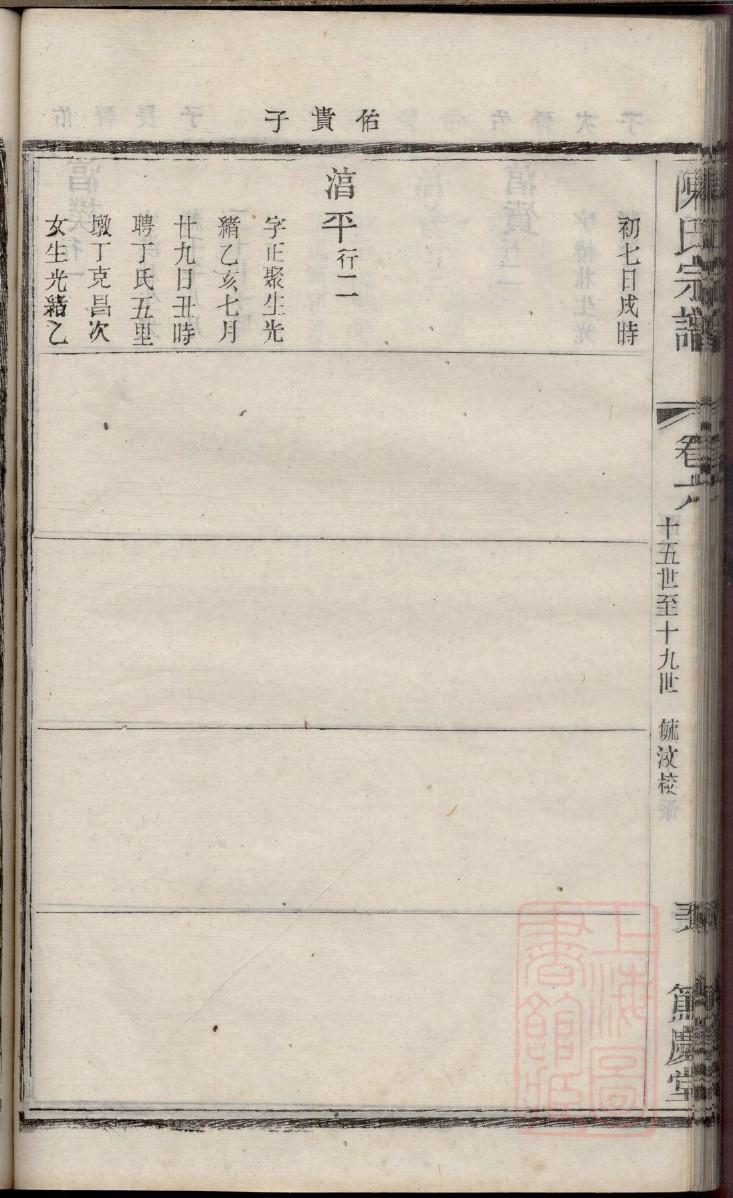 佑貴子
初七日戌時
湻平行二
字正聚生光
緒乙亥七月
廿九日丑時
聘丁氏五里
墩丁克昌次
女生光緒乙
陳氏宗譜
卷六
十五世至十九世
毓汶校
篤慶堂
上海圖
書館藏